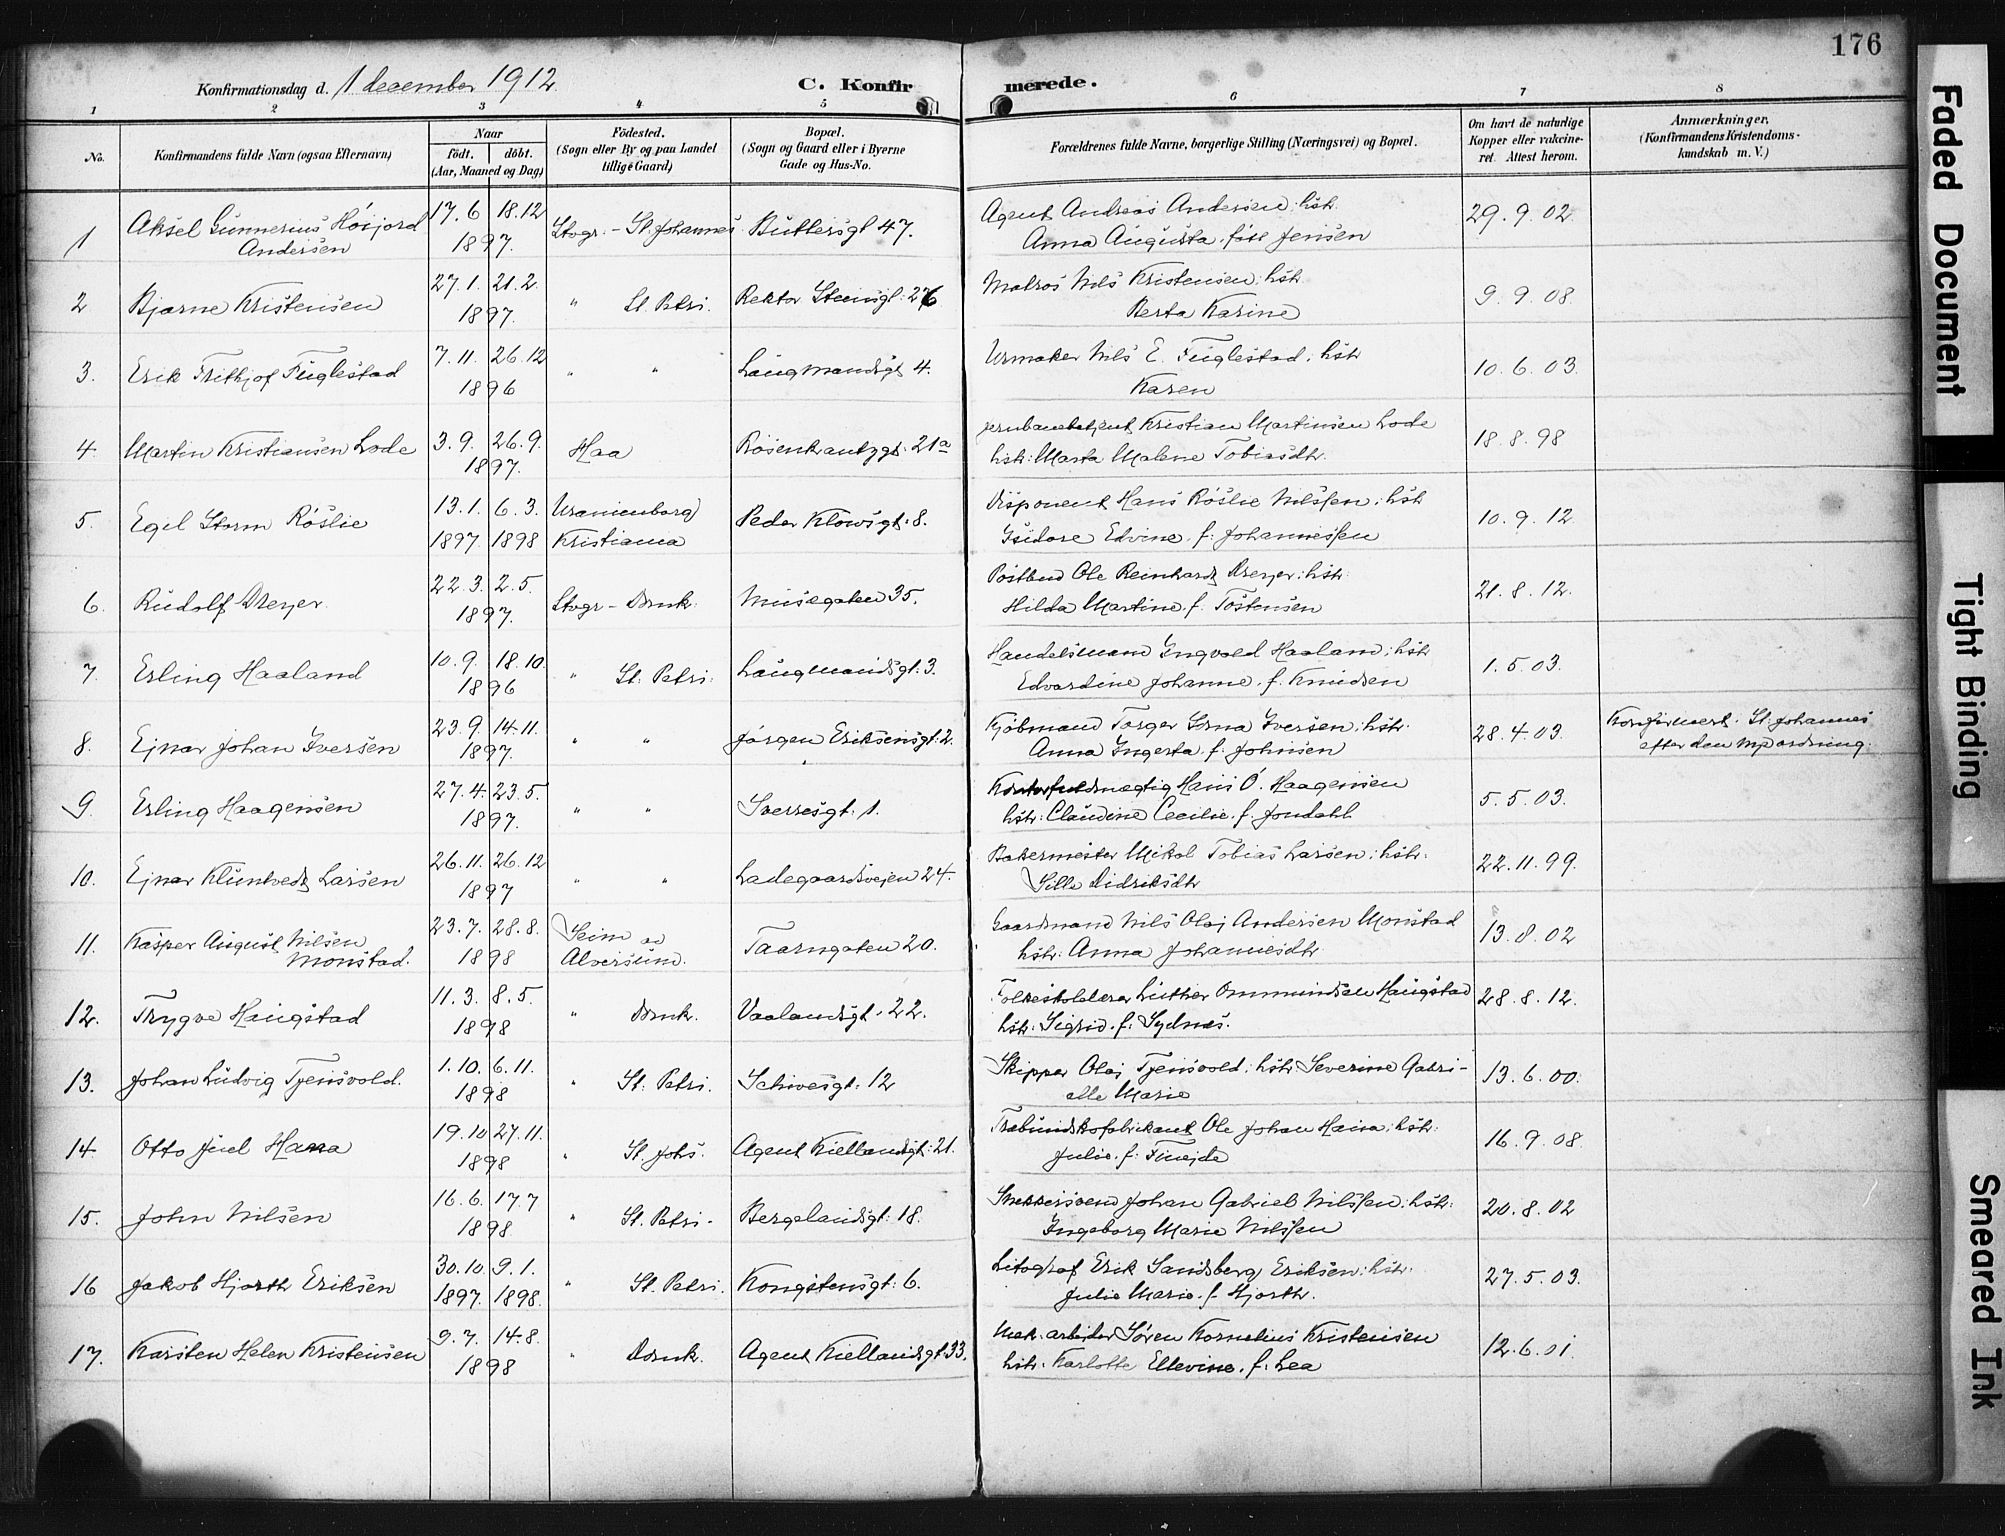 176
Konfirmationsdag d. 1 december 1912 C. Konfirmerede.
1 2 3 4 5 6 7 8
No. Konfirmandens fulde Navn (ogsaa Efternavn)
Naar
födt. döbt.
(Aar, Maaned og Dag)
Födested.
(Sogn eller By og paa Landet
tillige Gaard)
Bopæl.
(Sogn og Gaard eller i Byerne
Gade og Hus-No.
Forældrenes fulde Navne, borgerlige Stilling (Næringsvei) og Bopæl.
Om havt de naturlige
Kopper eller vakcine-
ret. Attest herom.
Anmærkninger.
(Konfirmandens Kristendoms-
kundskab m. V.)
1 Aksel Gunnerius Hösjord 17.6 18.12 Stvgr. - St. Johannes Buttersgt 47. Agent Andreas Andersen, hstr. 29.9.02
Andersen 1897. Anna Augusta, föd Jensen
2 Bjarne Kristensen 27.1. 21.2. " St. Petri. Rektor Steensgt: 26 Matros Nils Kristensen, hstr 9.9.08.
1897. Berta Karine
3. Erik Frithjof Fuglestad 7.11. 26.12 " " Laugmandsgt 4. Urmaker Nils E. Fuglestad, hstr 10.6.03.
1896 Karen
4. Martin Kristiansen Lode 3.9. 26.9. Haa Rosenkrantzgt: 21a Jernbanebetjent Kristian Martinsen Lode 18.8.98
1897. hstr: Marta Malene Tobiasdtr.
5. Egil Storm Röslie 13.1. 6.3. Uranienborg Peder Klowsgt: 8. Disponent Hans Röslie Nilssen, hstr 10.9.12
1897. 1898 Kristiania Isidore Edvine f: Johannessen
6. Rudolf Dreyer. 22.3. 2.5. Stvgr - Domk. Musegaten 35. Postbud Ole Reinhardt Dreyer, hstr. 21.8.12.
1897. Hilda Martine f. Tostensen
7. Erling Haaland 10.9. 18.10. " St. Petri. Laugmandsgt: 3. Handelsmand Ingvald Haaland, hstr 1.5.03.
1896 Edvardine Johanne f. Knudsen
8. Ejnar Johan Iversen 23.9. 14.11. " " Jörgen Eriksensgt: 2. Kjöbmand Torger Srna Iversen, hstr. 28.4.03. Konfirmert. St. Johannes
1897. Anna Ingerta f. Johnsen efter den ordning.
9. Erling Haagensen 27.4. 23.5. " " Sverresgt: 1. Kontorfuldmægtig Hans O. Haagensen 5.5.03.
1897. hstr: Claudine Cecilie f. Jondahl
10. Ejnar Kluntvedt Larsen 26.11. 26.12 " " Ladegaardsvejen 24. Bakermester Mikal Tobias Larsen, hstr: 22.11.99.
1897 Sille Didriksdtr
11. Kasper August Nilsen 23.7. 28.8. Seim Taarngaten 20. Gaardmand Nils Olaj Andersen Monstad 13.8.02
Monstad. 1898 Alversund. hstr: Anna Johannesdtr
12. Trygve Haugstad 11.3. 8.5. " Domk. Vaalandsgt. 22. Folkeskolelærer Luther Ommundsen Haugstad 28.8.12.
1898 hstr: Sigrid f. Sydnæs.
13. Johan Ludvig Tjensvold. 1.10. 6.11. " St. Petri. Schivesgt: 12 Skipper Olaj Tjensvold, hstr Severine Gabri- 13.6.00.
1898 elle Marie
14. Otto Juel Hana 19.10 27.11. " St. Johs. Agent Kiellandsgt: 21. Ole Johan Hana, hstr: 16.9.08.
1898 Julie f:
15. John Nilsen 16.6. 17.7 " St. Petri. Bergelandsgt: 18. Snekkersvend Johan Gabriel Nilssen, hstr: 20.8.02
1898 Ingeborg Marie Nilssen
16 Jakob Hjorth Eriksen 30.10. 9.1. " St. Petri. Kongstensgt: 6. Litograf Erik Sandsberg Eriksen, hstr. 27.5.03.
1897. 1898. Julie Marie f. Hjorth.
17. Karsten Helen Kristensen 9.7. 14.8. " Domk. Agent Kiellandsgt 33. Mek. arbeider Sören Kornelius Kristensen 12.6.01.
1898 hstr. Karlotte Ellevine f: Lea
Faded Document
Tight Binding
Smeared Ink